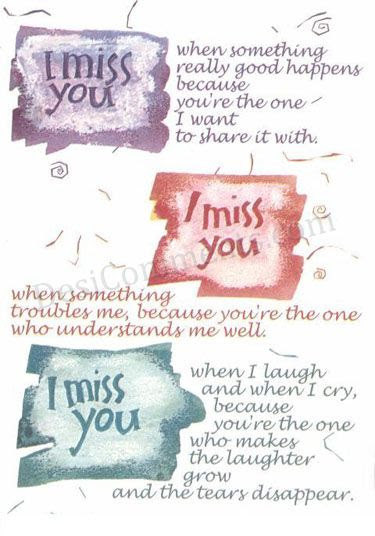 I miss
you
when something
really good happens
because
you're the one
I want
to share it with.
I miss
you
when something
troubles me, because you're the one
who understands me well.
I miss
you
when I laugh
and when I cry,
because
you're the one
who makes
the laughter
grow
and the tears disappear.